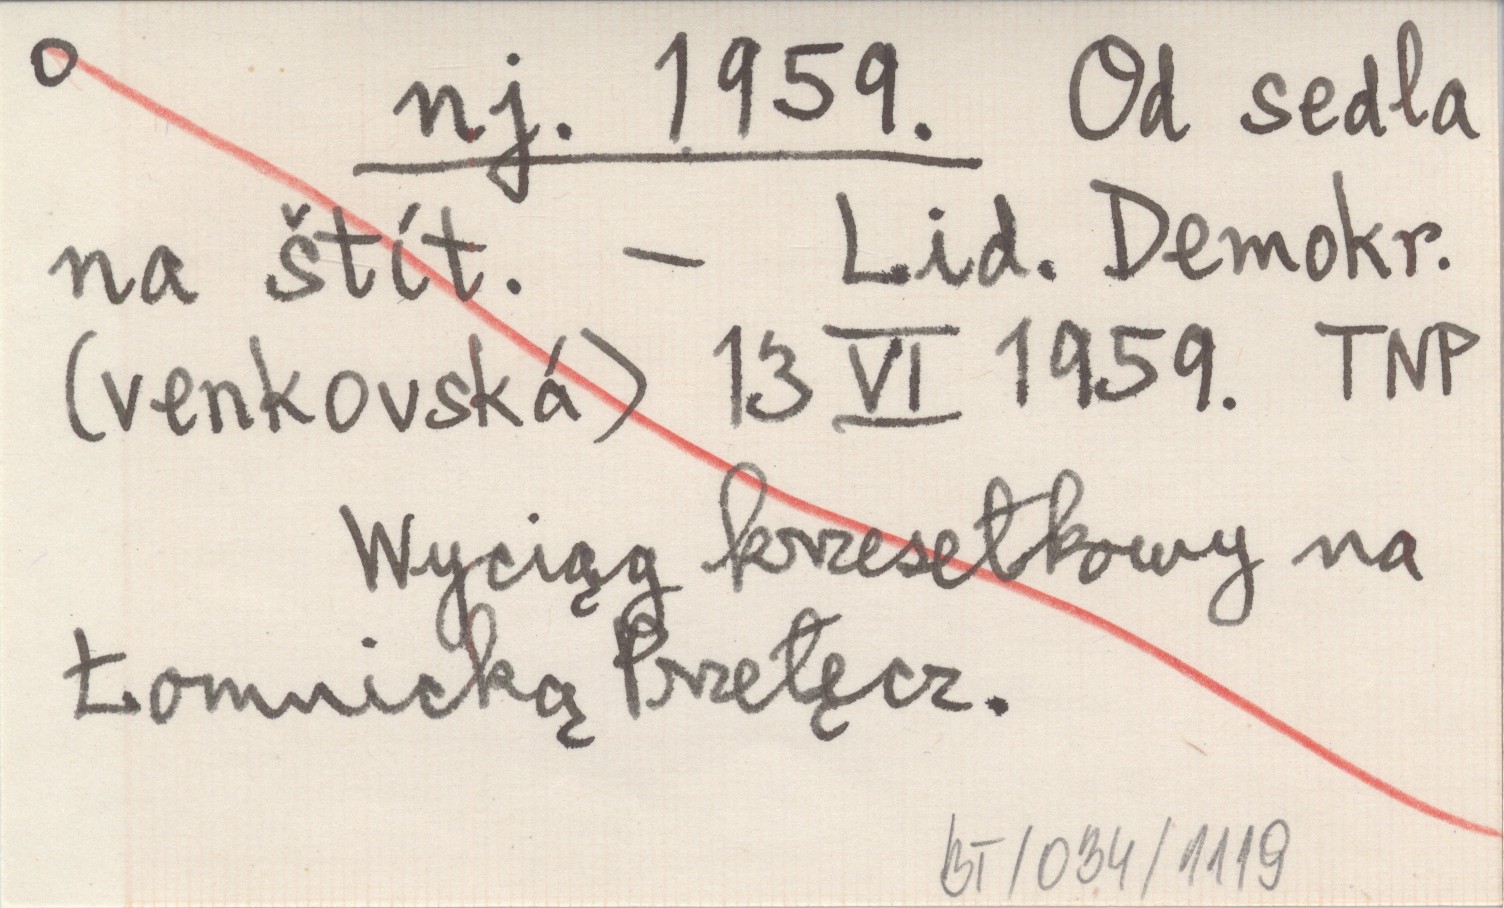 o nj. 1959. Od sedla
na štít. — Lid. Demokr.
(venkovská) 13 VI 1959. TNP
Wyciąg krzesełkowy na
Łomnicką Przełęcz.
BT/034/1119